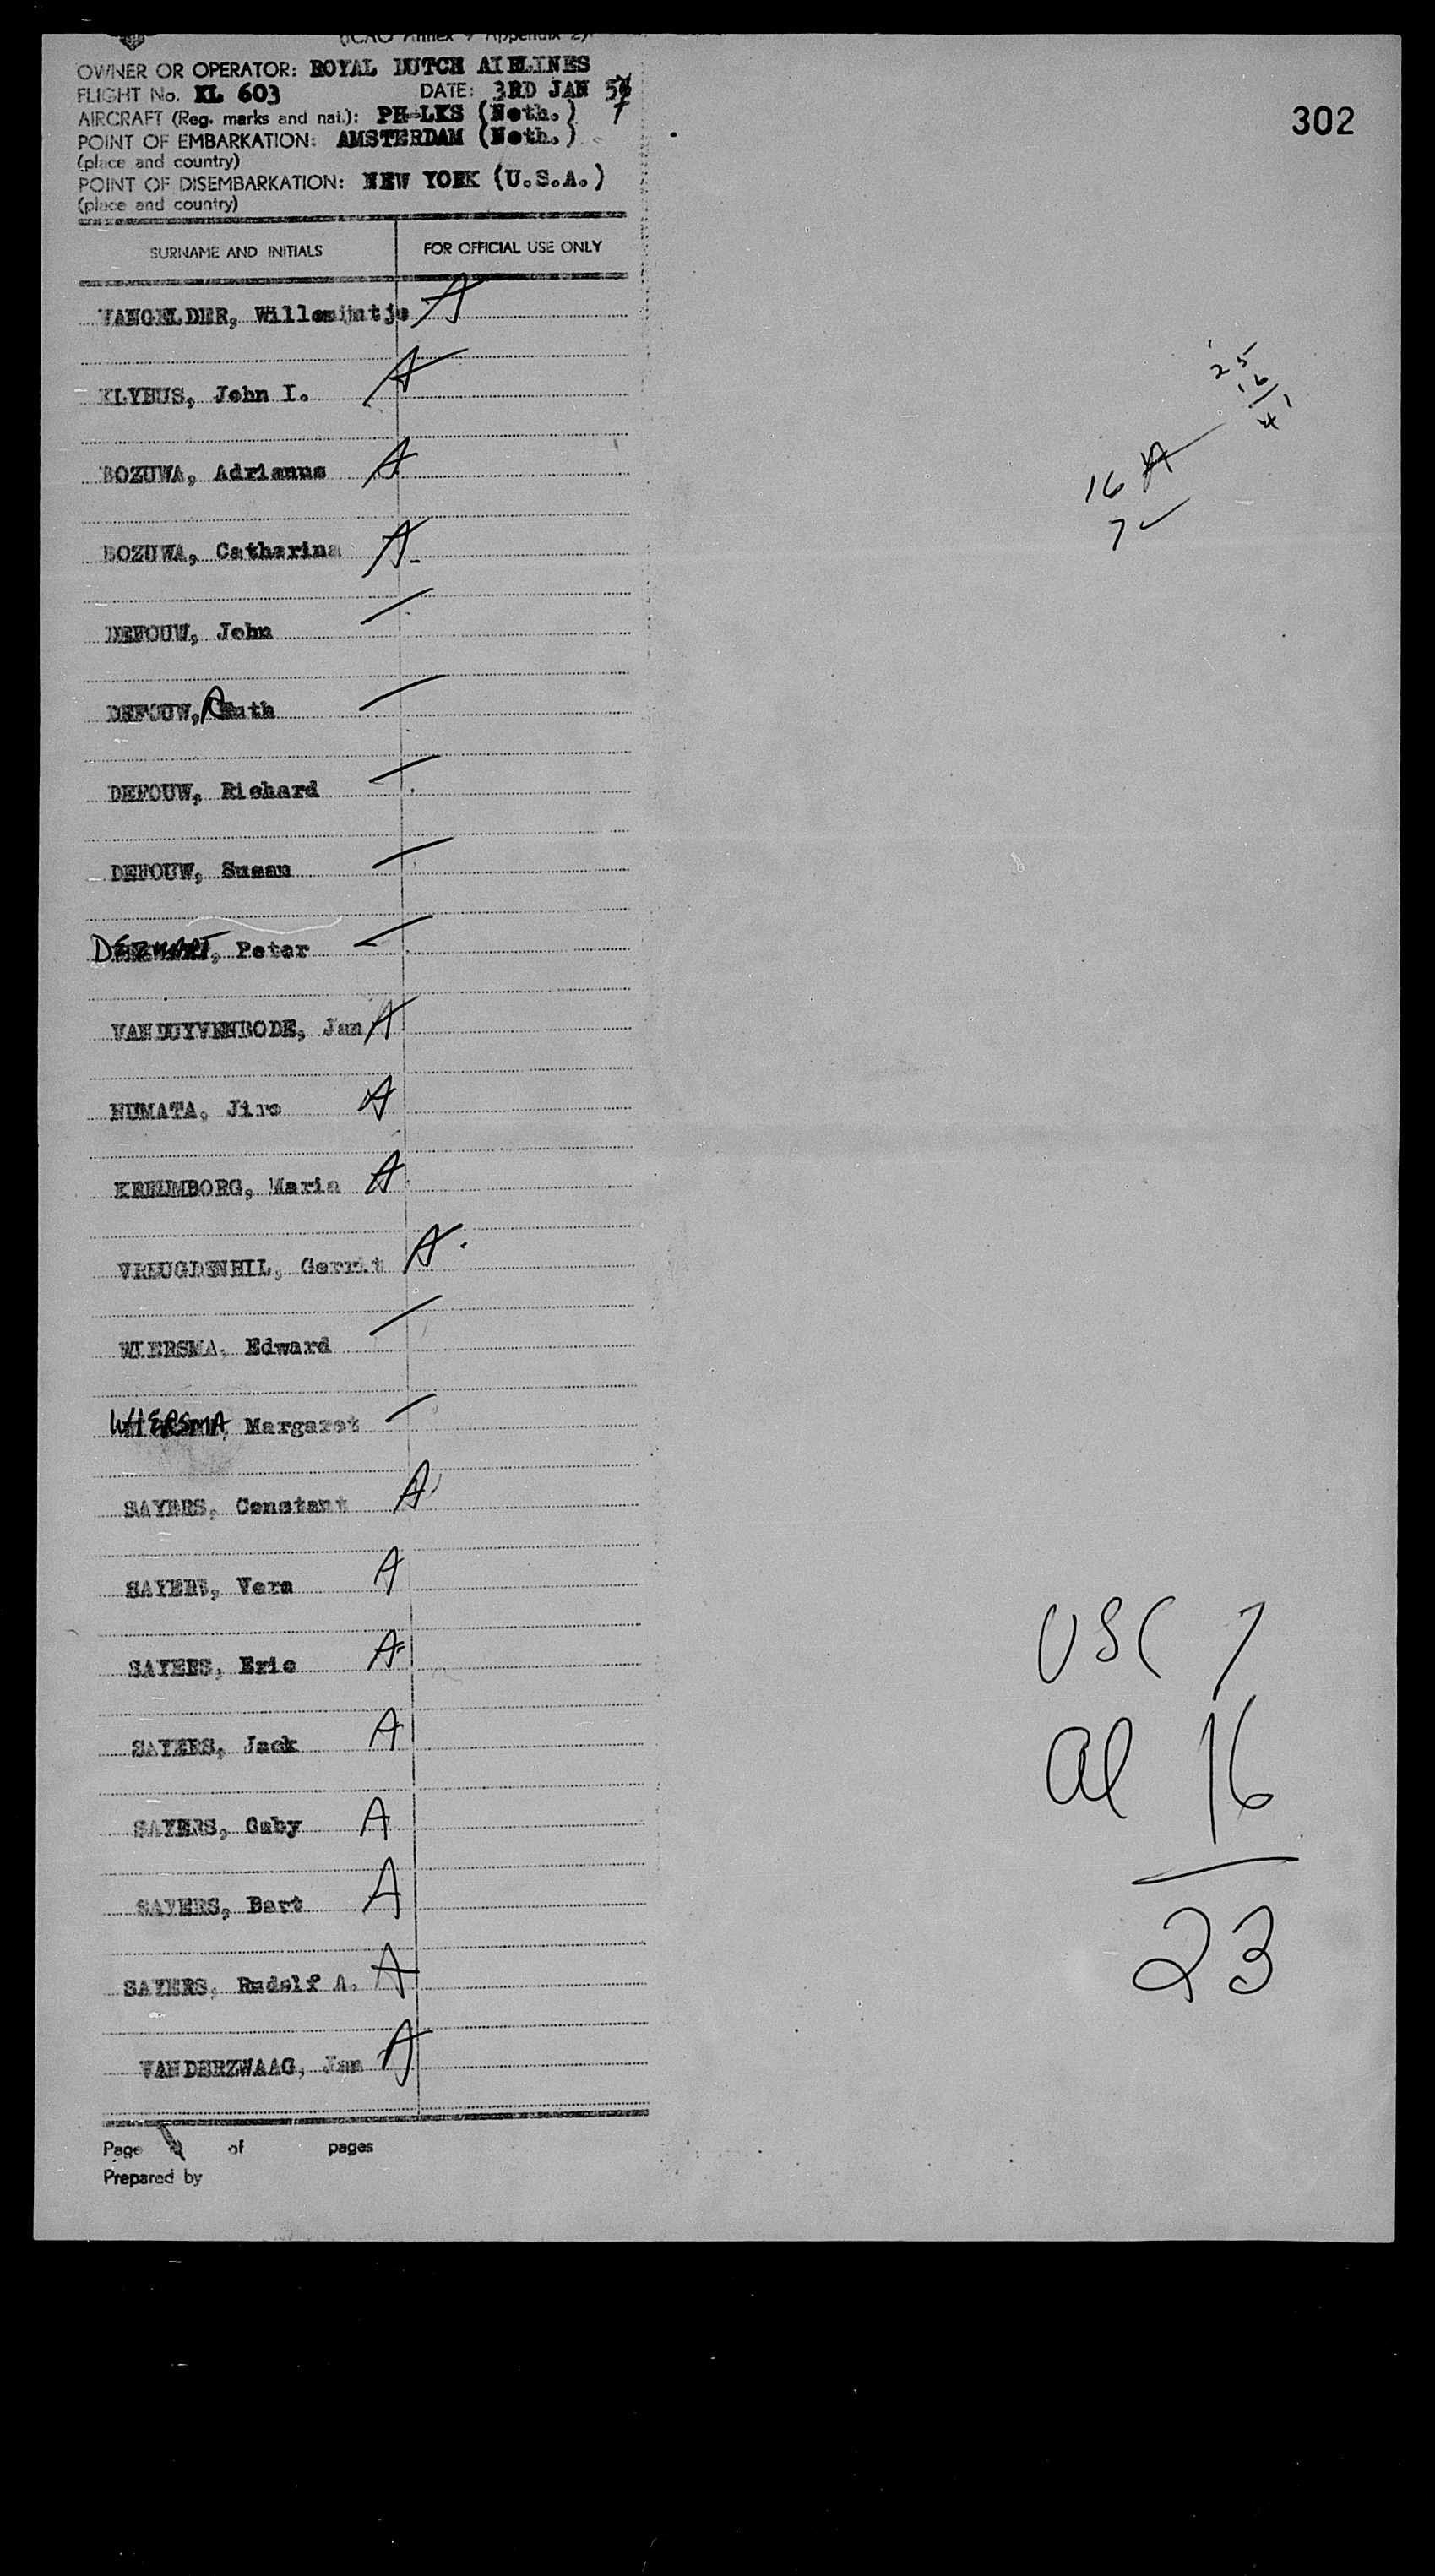 (ICAO Annex 9 Appendix 2)
OWNER OR OPERATOR: ROYAL DUTCH AIRLINES
FLIGHT No. KL 603 DATE: 3RD JAN 57
AIRCRAFT (Reg. marks and nat.): PH-LKS (Neth.)
POINT OF EMBARKATION: AMSTERDAM (Neth.)
(place and country)
POINT OF DISEMBARKATION: NEW YORK (U.S.A.)
(place and country)
302
SURNAME AND INITIALS FOR OFFICIAL USE ONLY
VANGELDER, Willemijntje A
KLYBUS, John I. A
BOZUWA, Adrianus A
BOZUWA, Catharina A
DEFOUW, John
DEFOUW, Ruth
DEFOUW, Richard
DEFOUW, Susan
Peter
VANDUYVENBODE, Jan A
NUMATA, Jiro A
KREUMBORG, Maria A
VREUGDENHIL, Gerrit A
WIERSMA, Edward
WIERSMA, Margaret
SAYERS, Constant A
SAYERS, Vera A
SAYERS, Eric A
SAYERS, Jack A
SAYERS, Gaby A
SAYERS, Bart A
SAYERS, Rudolf A. A
VANDERZWAAG, Jan A
Page of pages
Prepared by
25
16
41
16 A
7 ✓
USC 7
al 16
23